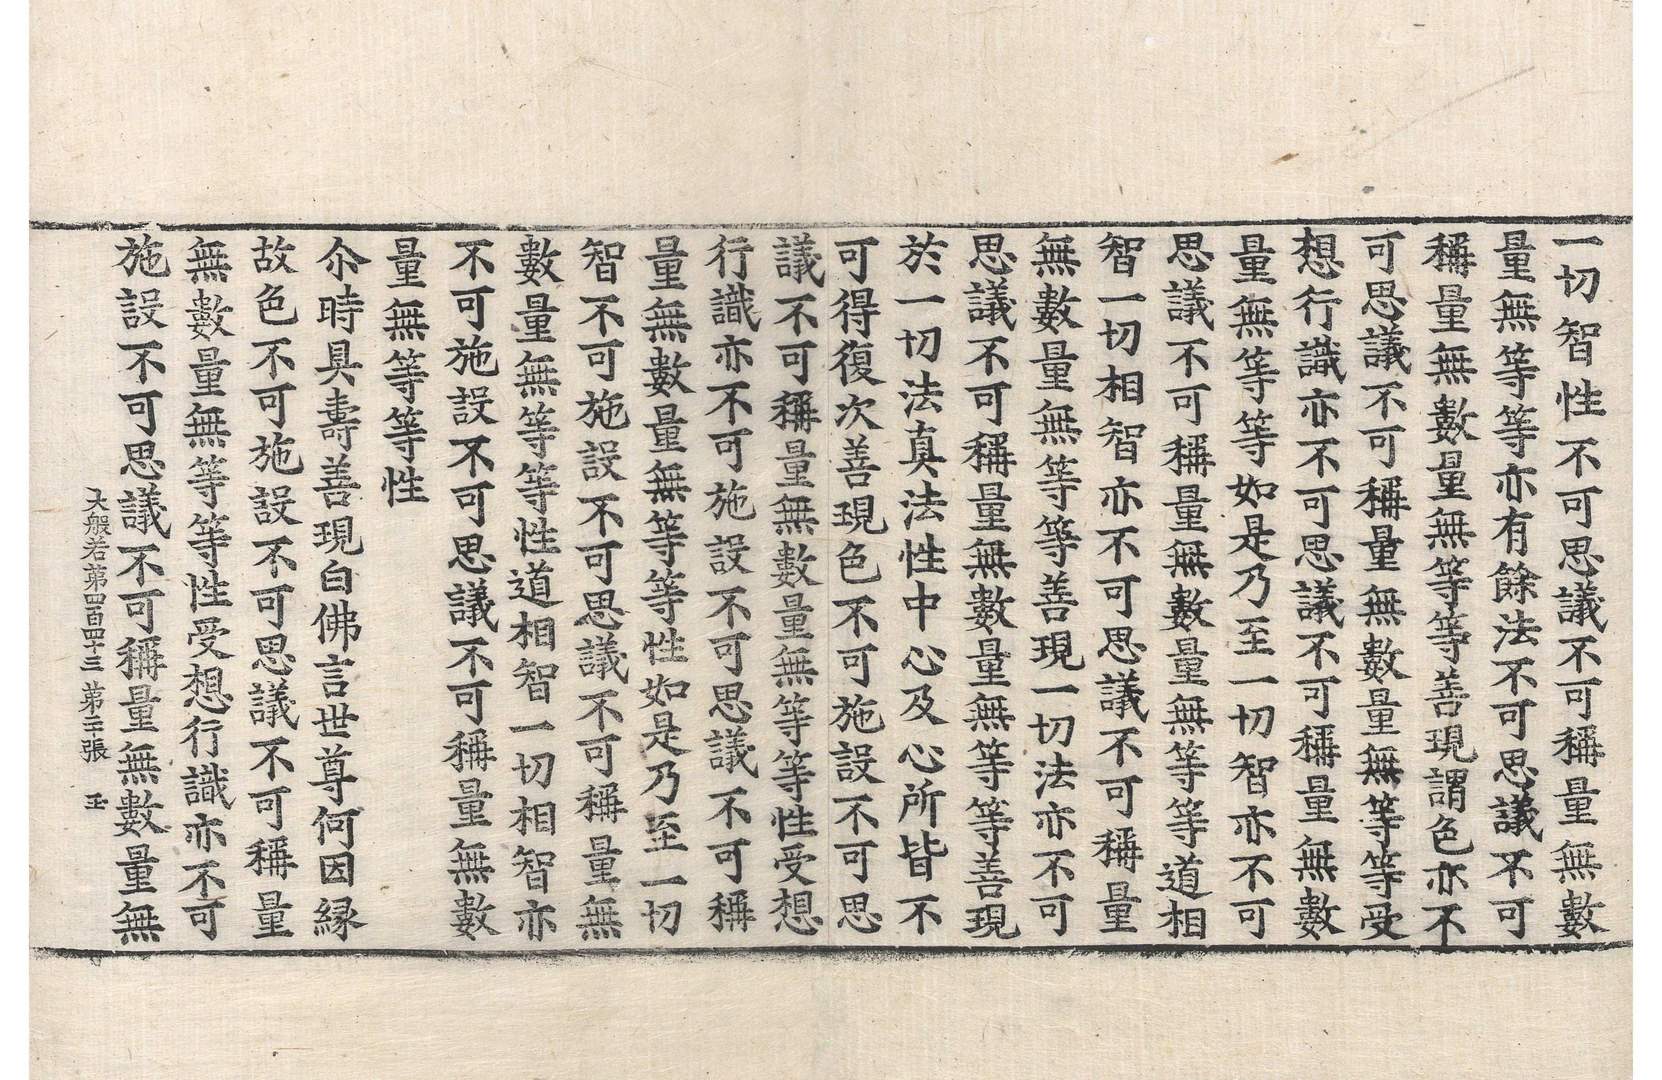 一切智性不可思議不可稱量無數
量無等等亦有餘法不可思議不可
稱量無數量無等等善現謂色亦不
可思議不可稱量無數量無等等受
想行識亦不可思議不可稱量無數
量無等等如是乃至一切智亦不可
思議不可稱量無數量無等等道相
智一切相智亦不可思議不可稱量
無數量無等等善現一切法亦不可
思議不可稱量無數量無等等善現
於一切法真法性中心及心所皆不
可得復次善現色不可施設不可思
議不可稱量無數量無等等性受想
行識亦不可施設不可思議不可稱
量無數量無等等性如是乃至一切
智不可施設不可思議不可稱量無
數量無等等性道相智一切相智亦
不可施設不可思議不可稱量無數
量無等等性
尒時具壽善現白佛言世尊何因緣
故色不可施設不可思議不可稱量
無數量無等等性受想行識亦不可
施設不可思議不可稱量無數量無
大般若第四百四十三 第二張 玉